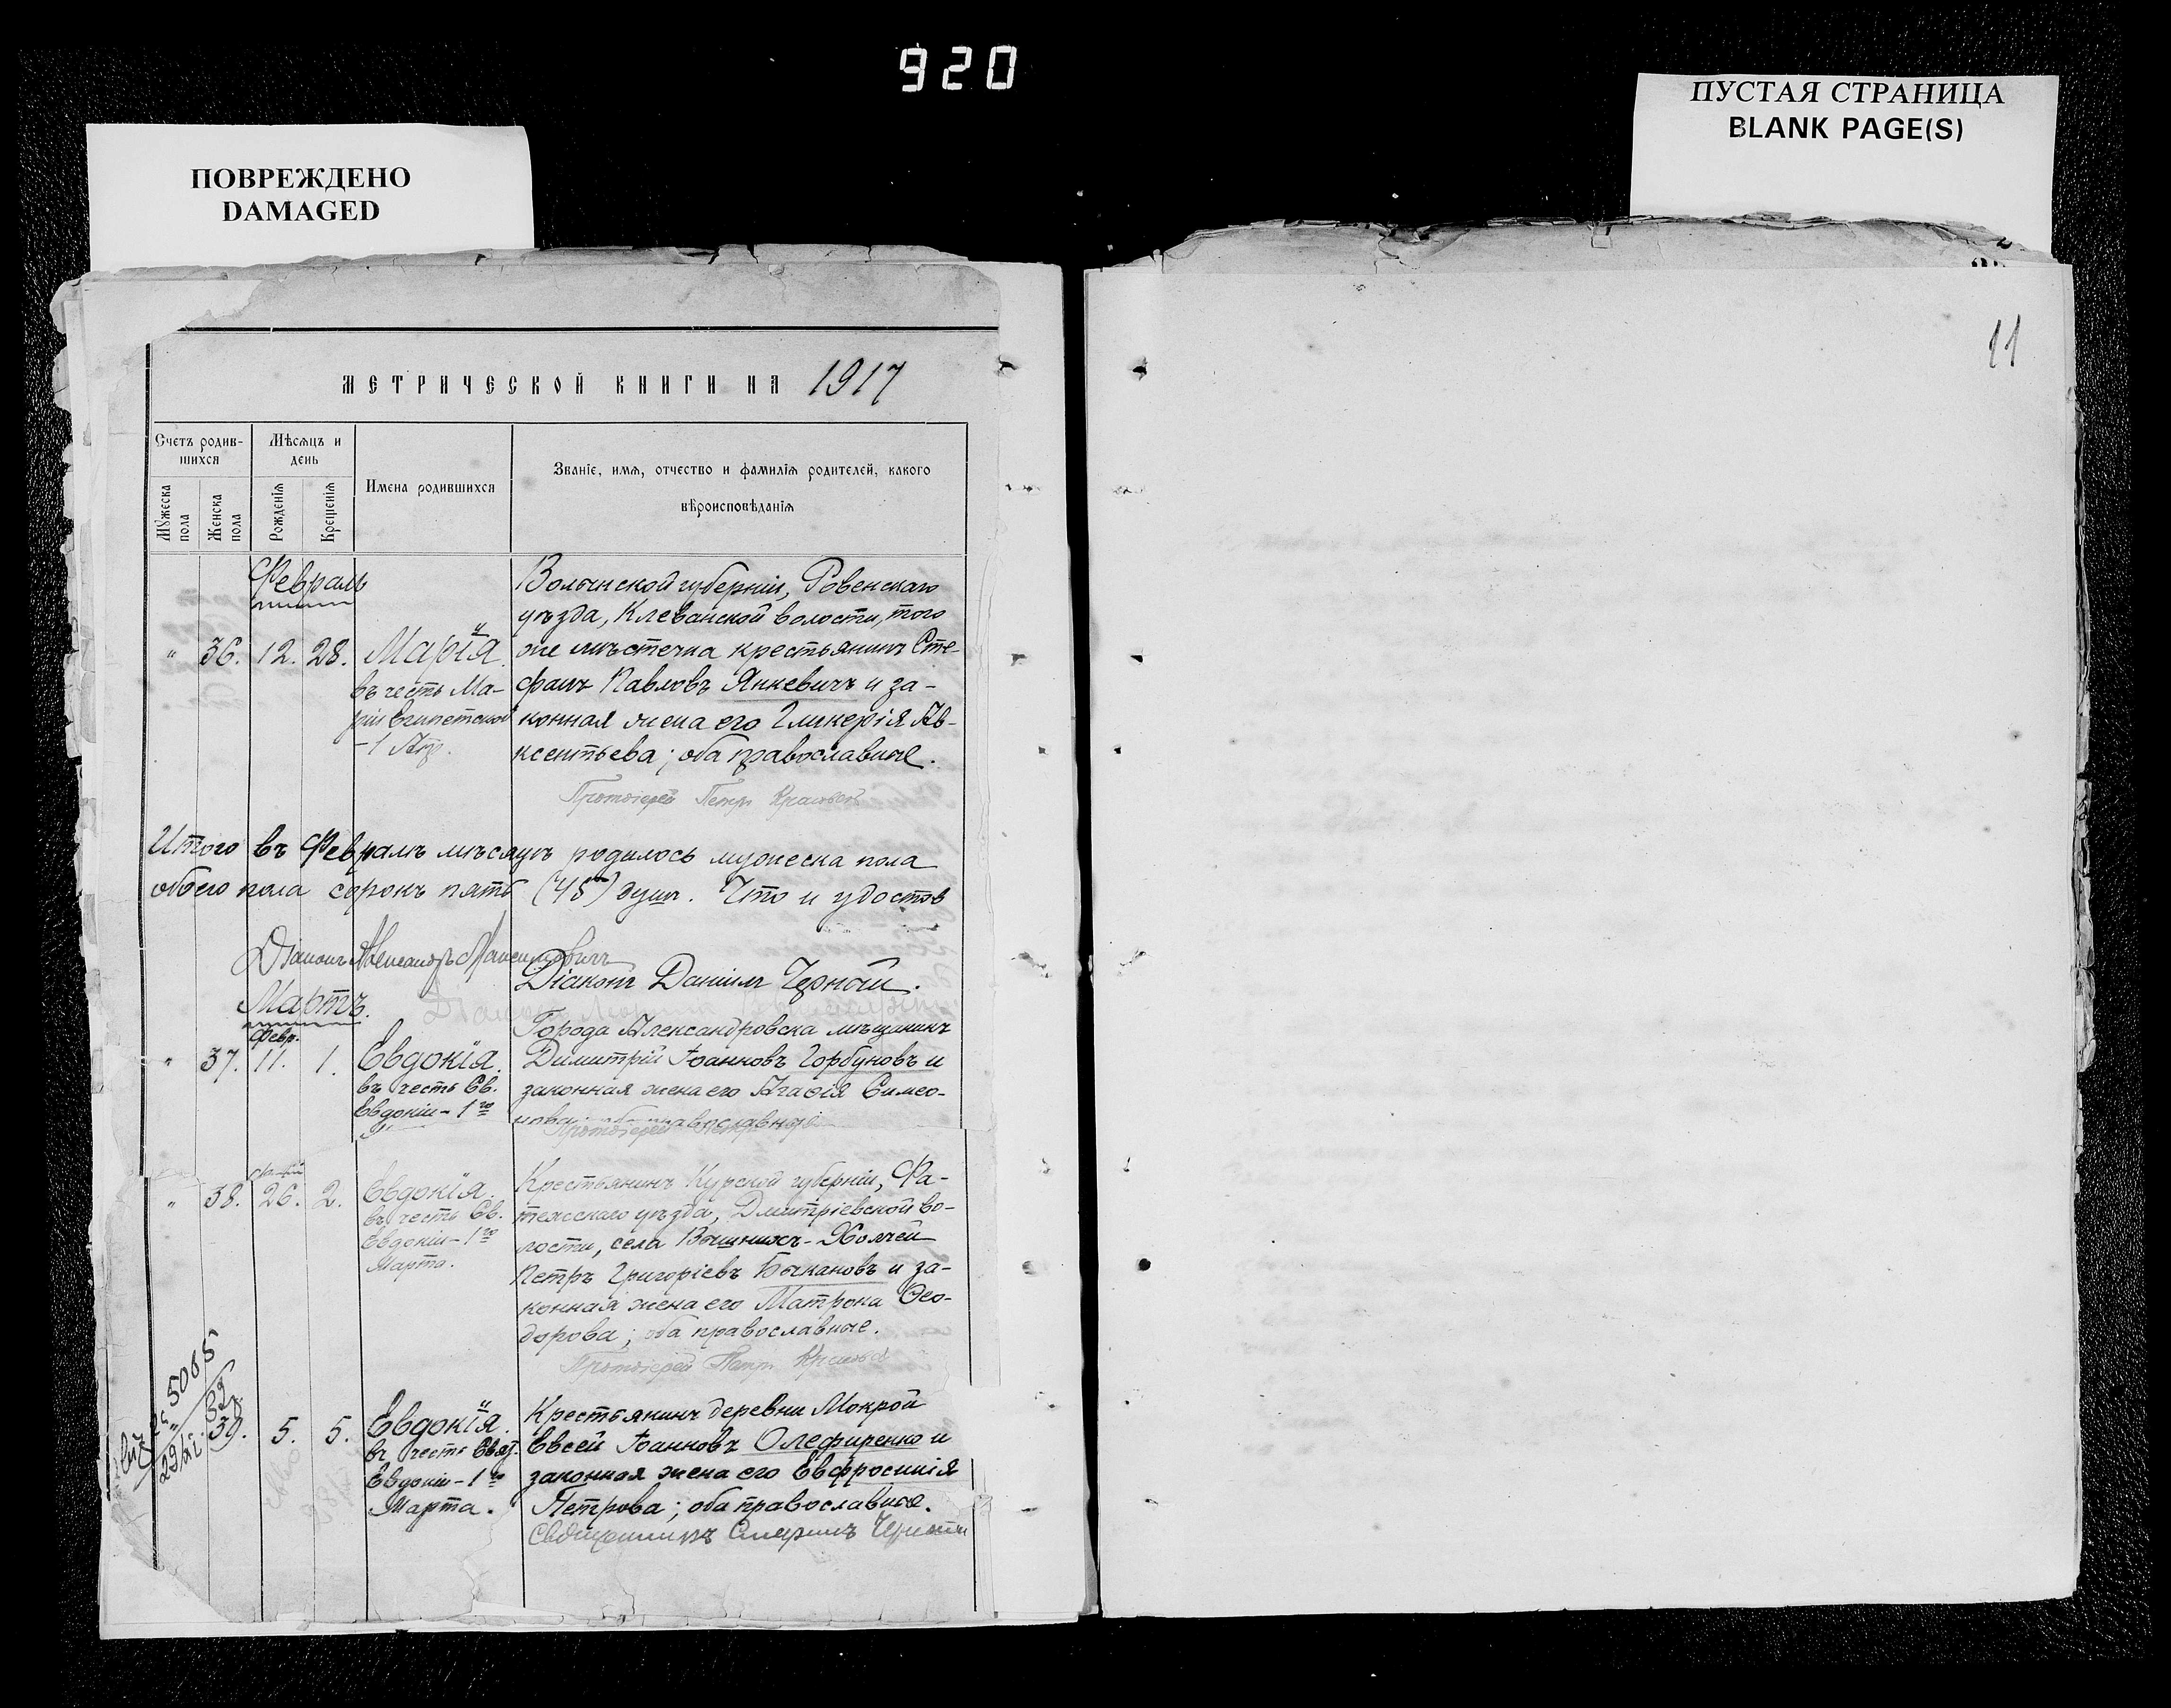 920
ПУСТАЯ СТРАНИЦА
BLANK PAGE(S)
ПОВРЕЖДЕНО
DAMAGED
11
МЕТРИЧЕСКОЙ КНИГИ НА 1917
Счетъ родив-
шихся
Мѣсяцъ и
день
Имена родившихся
Званіе, имя, отчество и фамилія родителей, какого
вѣроисповѣданія
Мужеска
пола
Женска
пола
Рожденія
Крещенія
Февраль
Волынской губерніи, Ровенскаго
уѣзда, Клеванской волости, того
" 36. 12. 28. Марія. же мѣстечка крестьянинъ Сте-
въ честь Ма- фанъ Павловъ Янкевичъ и за-
ріи Египетской конная жена его Гликерія Ав-
-1 Апр. ксентьева; оба православные.
Протоіерей Петръ
Итого въ Февралѣ мѣсяцѣ родилось мужеска пола
обоего пола сорокъ пять (45) душъ. Что и удостов
Діаконъ Александръ Максимовичъ
Діаконъ Даніилъ Чернай.
Мартъ.
Города Александровска мѣщанинъ
Февр.
" 37. 11. 1. Евдокія. Димитрій Іоанновъ Горбуновъ и
въ честь Св. законная жена его Агаѳія Симео-
Евдокіи - 1го нова; оба православные
Протоіерей Петръ
" 38. 26. 2. Евдокія. Крестьянинъ Курской губерніи, Фа-
въ честь Св. тежскаго уѣзда, Дмитріевской во-
Евдокіи - 1го лости, села Вышнихъ-Холчей
Марта. Петръ Григоріевъ Быкановъ и за-
конная жена его Матрона Ѳео-
дорова; оба православные.
Протоіерей Петръ
5065
32
29/XI
" 39. 5. 5. Евдокія. Крестьянинъ деревни Мокрой
въ честь Свят. Евсей Іоанновъ Олефиренко и
Евдокіи - 1го законная жена его Евфросинія
Марта. Петрова; оба православные.
Священникъ